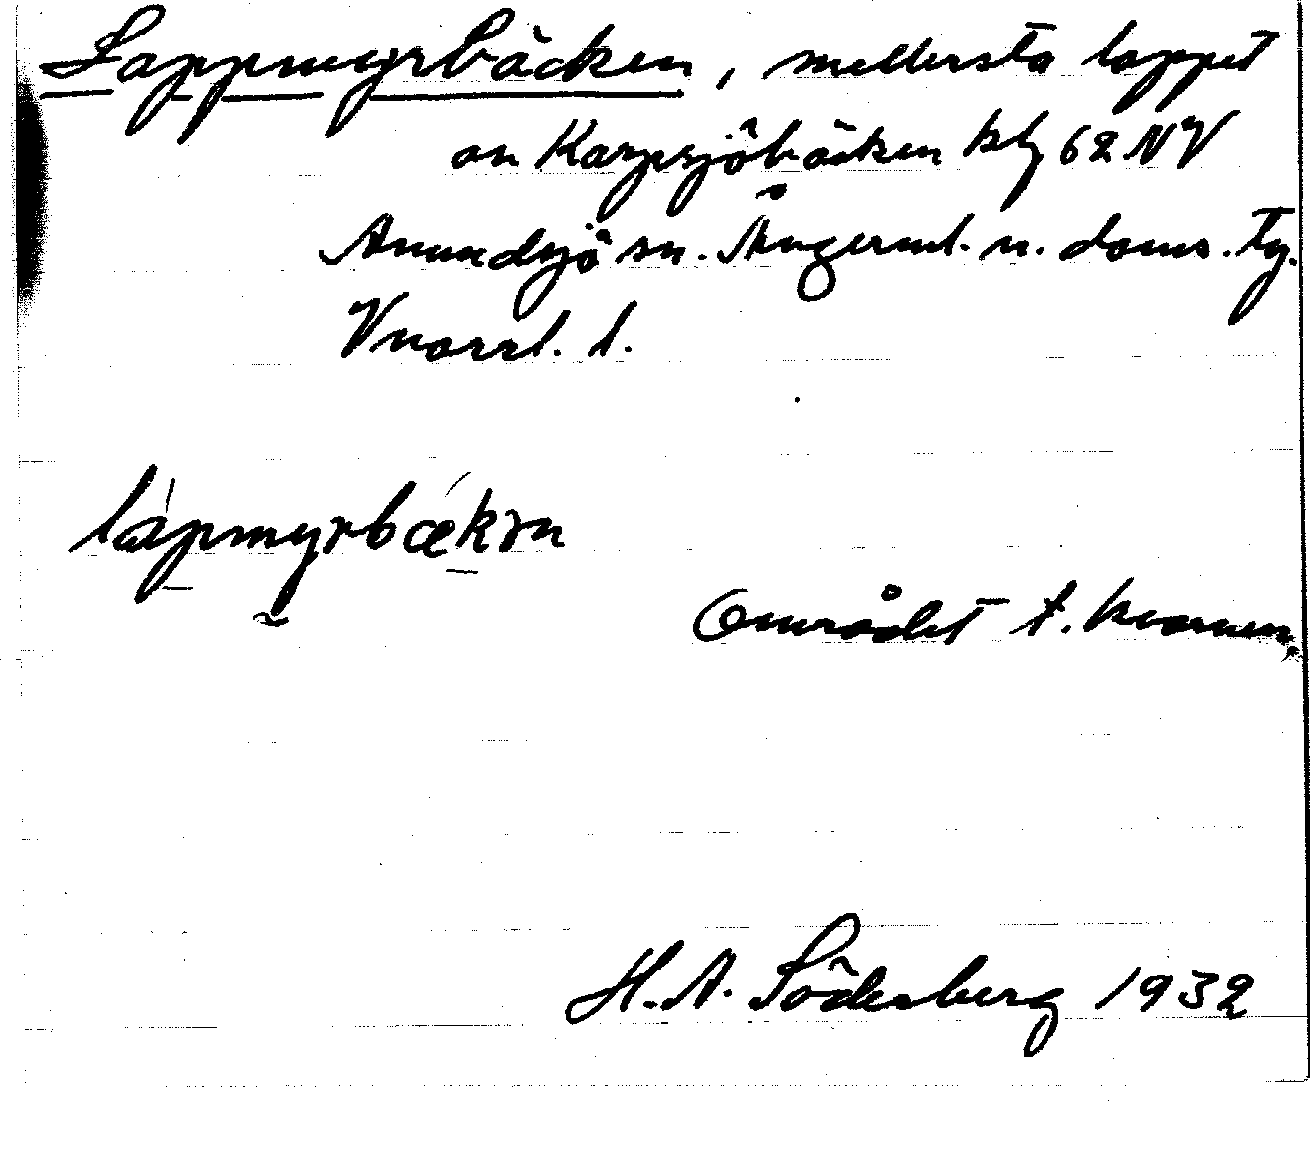 Lappmyrbäcken, mellersta loppet
av Karpsjöbäcken kbl 62 NV
Anundsjö sn. Ångerml. n. doms. tg.
Vnorrl. l.
lapmyrbækɜn
Området f. kvarnen
H. A. Söderberg 1932